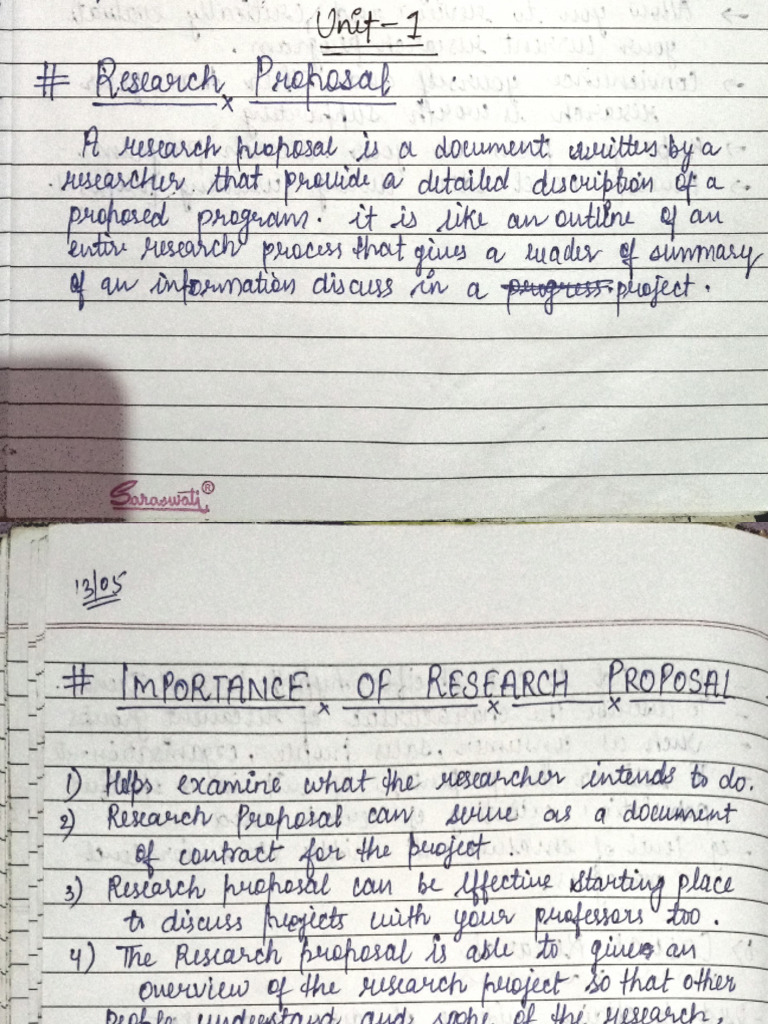 Unit - 1
# Research Proposal
A research proposal is a document written by a
researcher that provide a detailed description of a
proposed program. it is like an outline of an
entire research process that gives a reader of summary
of an information discuss in a progress project.
Saraswati®
13/05
# IMPORTANCE OF RESEARCH PROPOSAL
1) Helps examine what the researcher intends to do.
2) Research Proposal can serve as a document
of contract for the project.
3) Research proposal can be effective starting place
to discuss projects with your professors too.
4) The Research proposal is able to gives an
overview of the research project so that other
people understand and scope of the research.